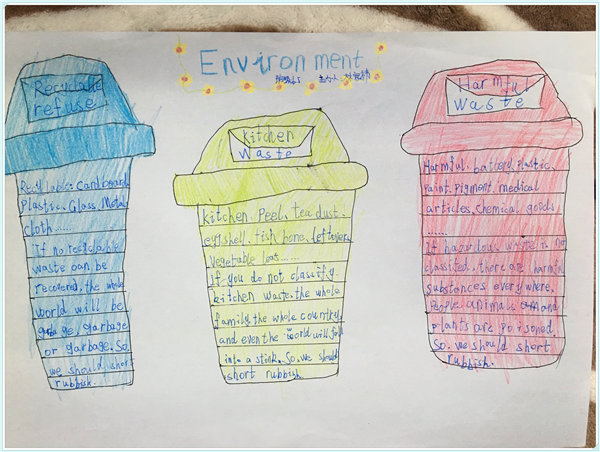 Environment
Recyclable
refuse
Recyclable: Cardboard
Plastic, Glass, Metal
Cloth......
If no recyclable
waste can be
recovered, the whole
world will be
garbage, garbage
or garbage. So,
we should short
rubbish.
kitchen
Waste
kitchen. Peel, tea dust,
eggshell, fish bone, leftovers,
Vegetable leaf......
if you do not classify
kitchen waste, the whole
family, the whole country,
and even the world will fall
into a stink. So, we should
short rubbish.
Harmful
Waste
Harmful. battery, Plastic,
Paint. Pigment, medical
articles, Chemical goods
......
if hazardous waste is not
classified, there are harmful
substances everywhere.
People animals and
plants are poisoned
So. we should short
rubbish.